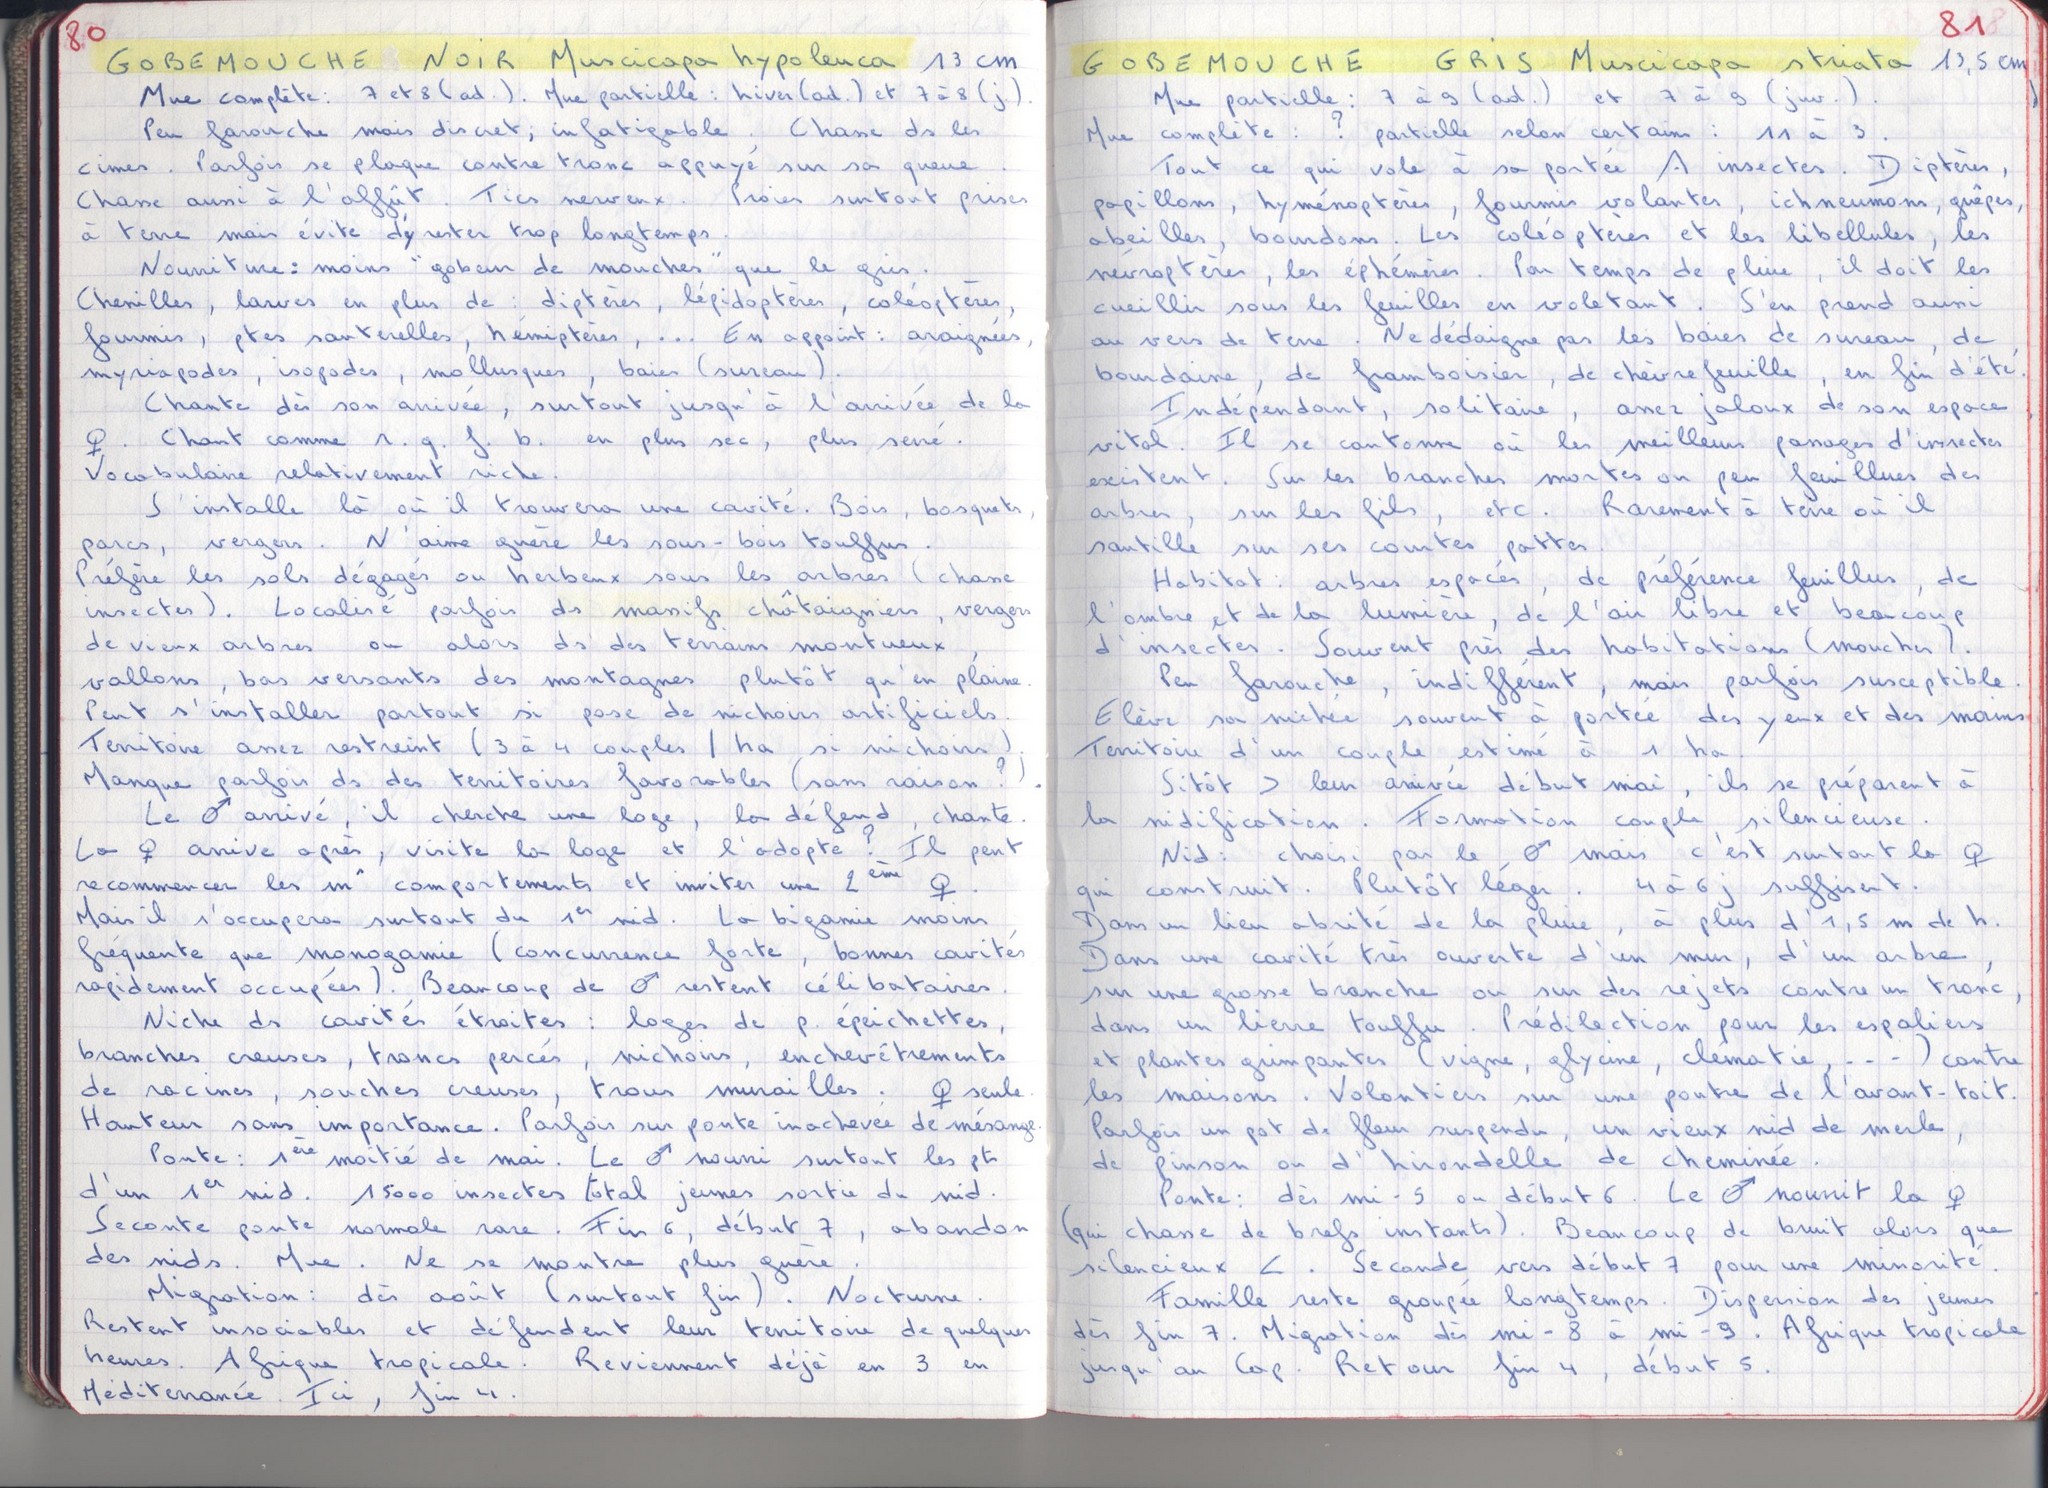 80
GOBEMOUCHE NOIR Muscicapa hypoleuca 13 cm
Mue complète : 7 et 8 (ad.). Mue partielle : hiver (ad.) et 7 à 8 (j.).
Peu farouche mais discret, infatigable. Chasse ds les
cimes. Parfois se plaque contre tronc appuyé sur sa queue.
Chasse aussi à l'affût. Tics nerveux. Proies surtout prises
à terre mais évite d'y rester trop longtemps.
Nourriture : moins "gobeur de mouches" que le gris.
Chenilles, larves en plus de : diptères, lépidoptères, coléoptères,
fourmis, ptes sauterelles, hémiptères, ... En appoint : araignées,
myriapodes, isopodes, mollusques, baies (sureau).
Chante dès son arrivée, surtout jusqu'à l'arrivée de la
♀. Chant comme r. q. f. b. en plus sec, plus serré.
Vocabulaire relativement riche.
S'installe là où il trouvera une cavité. Bois, bosquets,
parcs, vergers. N'aime guère les sous-bois touffus.
Préfère les sols dégagés ou herbeux sous les arbres (chasse
insectes). Localisé parfois ds massifs châtaigniers, vergers
de vieux arbres ou alors ds des terrains montueux,
vallons, bas versants des montagnes plutôt qu'en plaine.
Peut s'installer partout si pose de nichoirs artificiels.
Territoire assez restreint (3 à 4 couples / ha si nichoirs).
Manque parfois ds des territoires favorables (sans raison ?).
Le ♂ arrivé, il cherche une loge, la défend, chante.
La ♀ arrive après, visite la loge et l'adopte ? Il peut
recommencer les m^ comportements et inviter une 2ème ♀.
Mais il s'occupera surtout du 1er nid. La bigamie moins
fréquente que monogamie (concurrence forte, bonnes cavités
rapidement occupées). Beaucoup de ♂ restent célibataires.
Niche ds cavités étroites : loges de p. épeichettes,
branches creuses, troncs percés, nichoirs, enchevêtrements
de racines, souches creuses, trous murailles. ♀ seule.
Hauteur sans importance. Parfois sur ponte inachevée de mésange.
Ponte : 1ère moitié de mai. Le ♂ nourri surtout les pts
d'un 1er nid. 15000 insectes total jeunes sortie du nid.
Seconte ponte normale rare. Fin 6, début 7, abandon
des nids. Mue. Ne se montre plus guère.
Migration : dès août (surtout fin). Nocturne.
Restent insociables et défendent leur territoire de quelques
heures. Afrique tropicale. Reviennent déjà en 3 en
Méditerranée. Ici, fin 4.
81
GOBEMOUCHE GRIS Muscicapa striata 13,5 cm
Mue partielle : 7 à 9 (ad.) et 7 à 9 (juv.).
Mue complète : ? partielle selon certains : 11 à 3.
Tout ce qui vole à sa portée Λ insectes. Diptères,
papillons, hyménoptères, fourmis volantes, ichneumons, guêpes,
abeilles, bourdons. Les coléoptères et les libellules, les
névroptères, les éphémères. Par temps de pluie, il doit les
cueillir sous les feuilles en voletant. S'en prend aussi
au vers de terre. Ne dédaigne pas les baies de sureau, de
bourdaine, de framboisier, de chèvrefeuille, en fin d'été.
Indépendant, solitaire, assez jaloux de son espace
vital. Il se cantonne où les meilleurs passages d'insectes
existent. Sur les branches mortes ou peu feuillues des
arbres, sur les fils, etc. Rarement à terre où il
sautille sur ses courtes pattes.
Habitat : arbres espacés, de préférence feuillus, de
l'ombre et de la lumière, de l'air libre et beaucoup
d'insectes. Souvent près des habitations (mouches).
Peu farouche, indifférent, mais parfois susceptible.
Elève sa nichée souvent à portée des yeux et des mains
Territoire d'un couple estimé à 1 ha.
Sitôt > leur arrivée début mai, ils se préparent à
la nidification. Formation couple silencieuse.
Nid : choisi par le ♂ mais c'est surtout la ♀
qui construit. Plutôt léger. 4 à 6 j suffisent.
Dans un lieu abrité de la pluie, à plus d'1,5 m de h.
Dans une cavité très ouverte d'un mur, d'un arbre,
sur une grosse branche ou sur des rejets contre un tronc,
dans un lierre touffu. Prédilection pour les espaliers
et plantes grimpantes (vigne, glycine, clématie, ...) contre
les maisons. Volontiers sur une poutre de l'avant-toit.
Parfois un pot de fleur suspendu, un vieux nid de merle,
de pinson ou d'hirondelle de cheminée.
Ponte : dès mi-5 ou début 6. Le ♂ nourrit la ♀
(qui chasse de brefs instants). Beaucoup de bruit alors que
silencieux <. Seconde vers début 7 pour une minorité.
Famille reste groupée longtemps. Dispersion des jeunes
dès fin 7. Migration dès mi-8 à mi-9. Afrique tropicale
jusqu'au Cap. Retour fin 4, début 5.